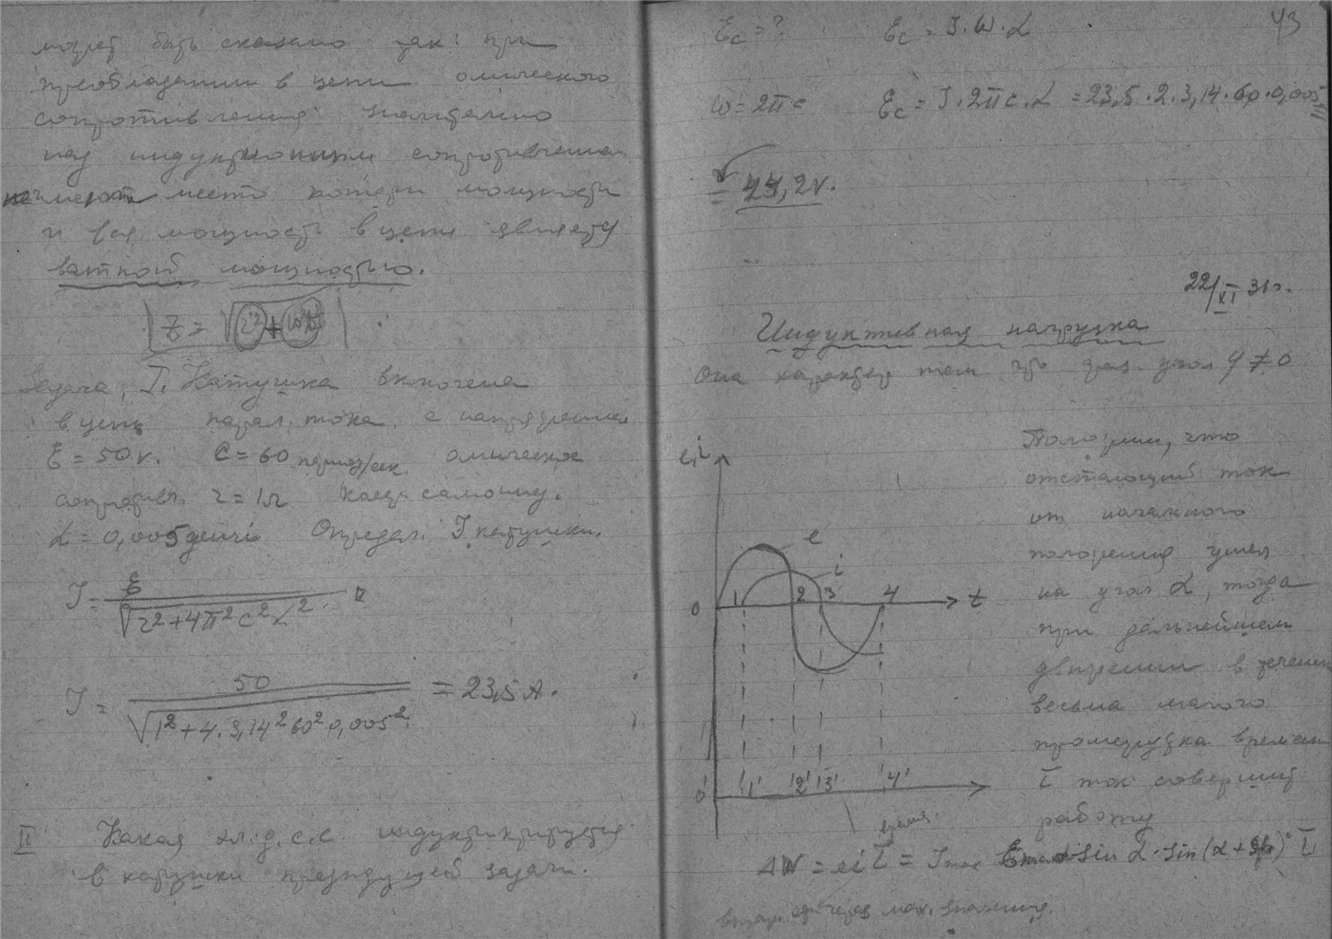 может быть сказано так: при
преобладании в цепи омического
сопротивления значительно
над индукционным сопротивлением
не имеют место потери мощности
и вся мощность в цепи является
ваттной мощностью.
Z = √
Задача I. Катушка включена
в цепь тока с напряжением
E = 50 v. C = 60 период/сек омическое
сопротив. r = 1Ω самоинд.
L = 0,005 генри Определ. I катушки.
I = E / √r² + 4π²c²L²
I = 50 / √1² + 4 . 3,14² 60² 0,005² = 23,5 A.
II Какая эл. д. с. с. индуктируется
в катушке предыдущей задачи.
43
Ec = ? Ec = I . W . L
ω = 2πc Ec = I . 2πc . L = 23,5 . 2 . 3,14 . 60 . 0,005
= 44,2 v.
22/XI 31 г.
Индуктивная нагрузка
Она тем что угол φ ≠ 0
Положим, что
отстающий ток
от начального
положения ушел
на угол α, тогда
при дальнейшем
движении в течении
весьма малого
промежутка времени
τ ток совершит
работу
e,i
e
i
0 1 2 3 4 t
0' 1' 2' 3' 4'
время.
AW = eiτ = Imax Emax sin α . sin(α + φ) τ
мах. значения.